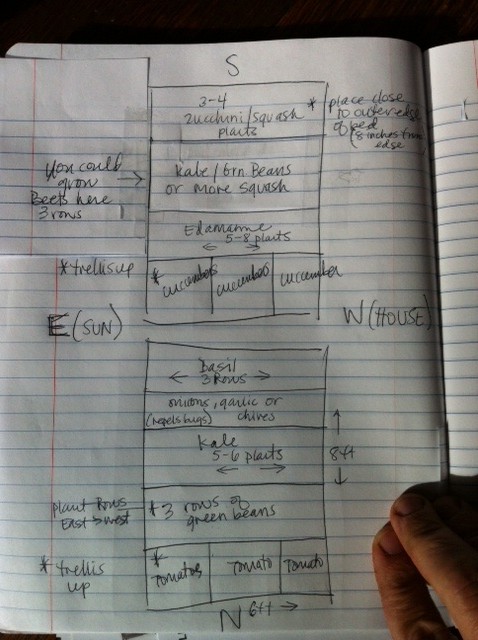 S
3-4
zucchini/squash *
plants
place close
to outer edge
of bed
(8 inches from
edge
You could
grow
Beets here
3 rows
Kale/Grn. Beans
or more squash
Edamame
5-8 plants
*trellis up
* cucumbers
cucumbers
cucumber
E (SUN)
W (HOUSE)
Basil
3 Rows
onions, garlic or
(repels bugs) chives
Kale
5-6 plants
8ft
Plant Rows
East > west
3 rows of
green beans
* trellis
up
* Tomatoes
Tomato
Tomato
N 6ft